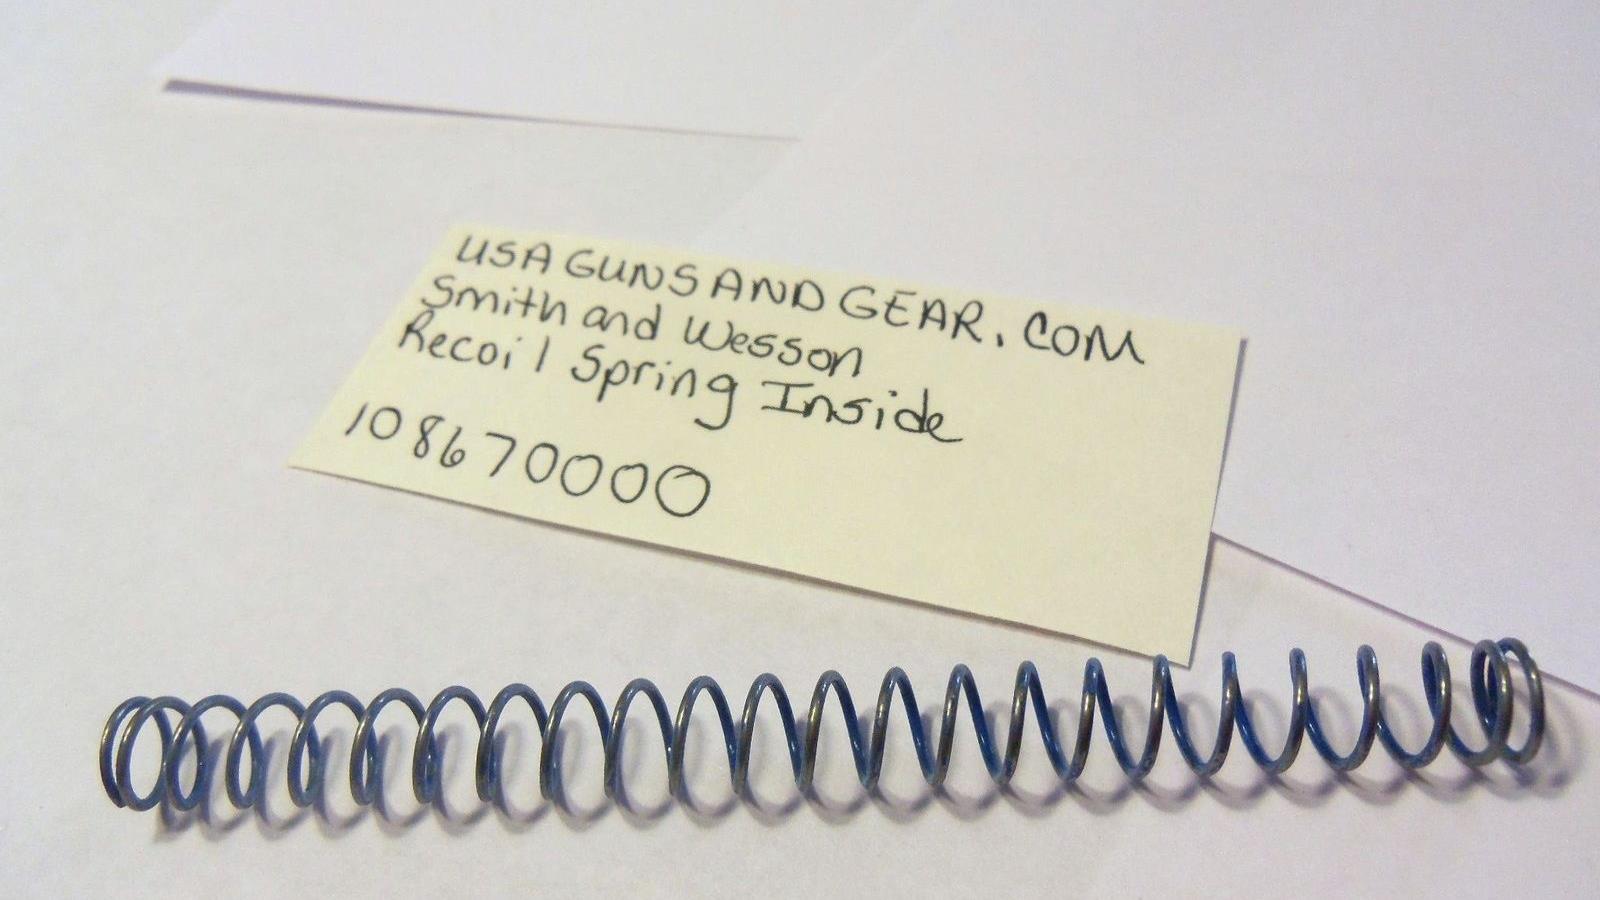 USA GUNS AND GEAR.COM
Smith and Wesson
Recoil Spring Inside
108670000